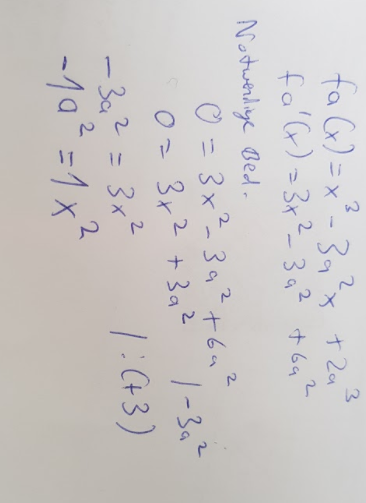 fa(x) = x³ - 3a²x + 2a³
fa'(x) = 3x² - 3a² + 6a²
Notwendige Bed.
0 = 3x² - 3a² + 6a²
0 = 3x² + 3a² | -3a²
-3a² = 3x² | :(+3)
-1a² = 1x²